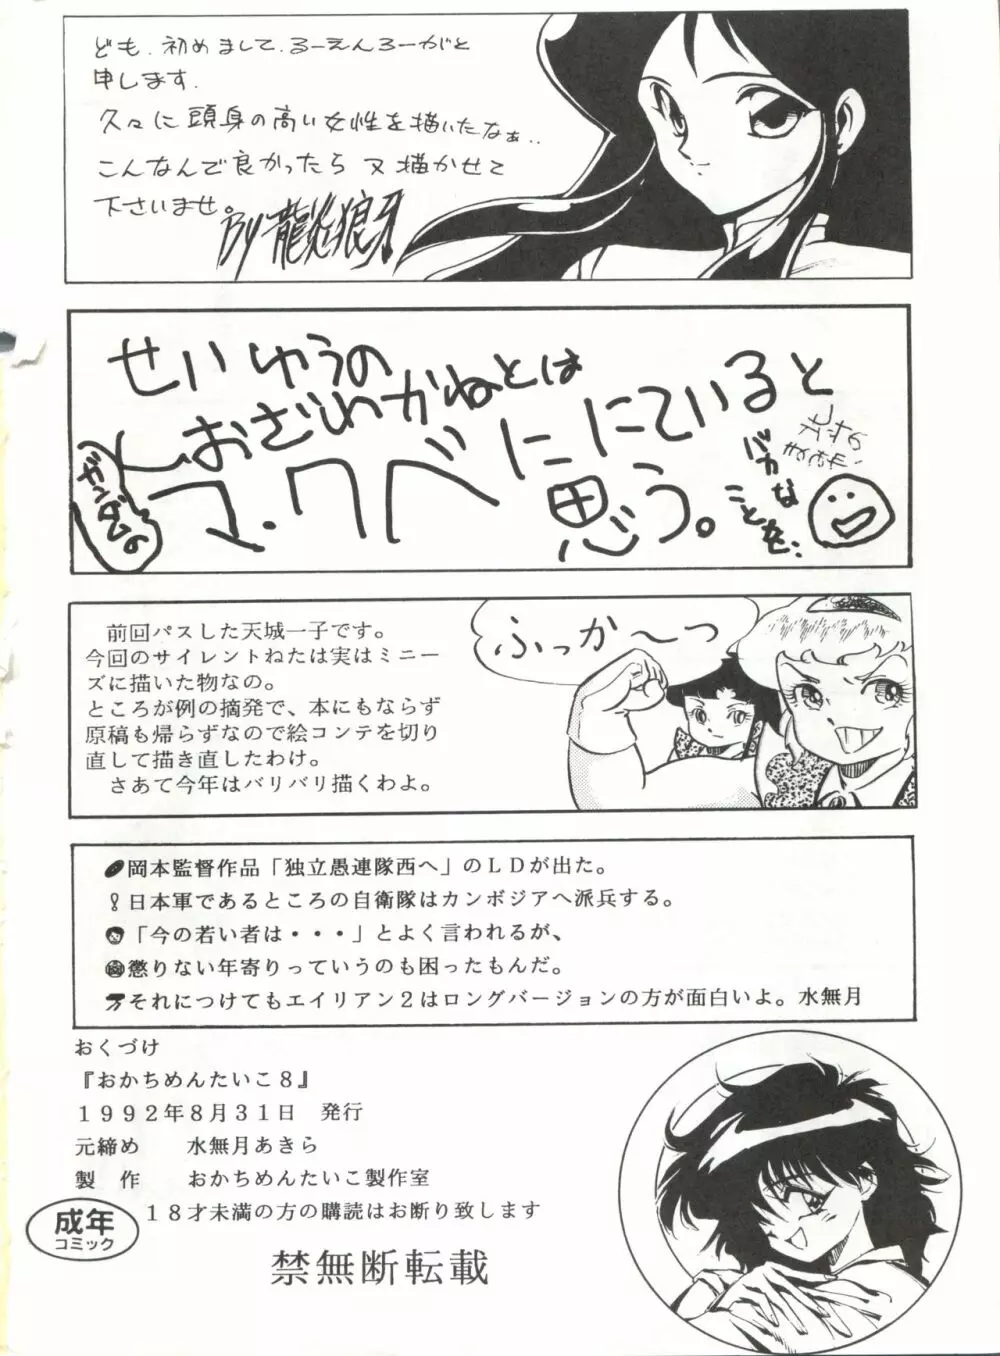 ども.初めまして.るーえんろーがと
申します.
久々に頭身の高い女性を描いたなぁ..
こんなんで良かったら又描かせて
下さいませ。
By 龍炎狼牙
せいゆうの
おざわかねとは
ガンダムの
マ・クベににていると
思う。
バカな
ことを..
前回パスした天城一子です。
今回のサイレントねたは実はミニー
ズに描いた物なの。
ところが例の摘発で、本にもならず
原稿も帰らずなので絵コンテを切り
直して描き直したわけ。
さあて今年はバリバリ描くわよ。
ふっか〜つ
岡本監督作品「独立愚連隊西へ」のLDが出た。
日本軍であるところの自衛隊はカンボジアへ派兵する。
「今の若い者は・・・」とよく言われるが、
懲りない年寄りっていうのも困ったもんだ。
それにつけてもエイリアン2はロングバージョンの方が面白いよ。水無月
おくづけ
『おかちめんたいこ8』
1992年8月31日 発行
元締め 水無月あきら
製 作 おかちめんたいこ製作室
18才未満の方の購読はお断り致します
成年
コミック
禁無断転載